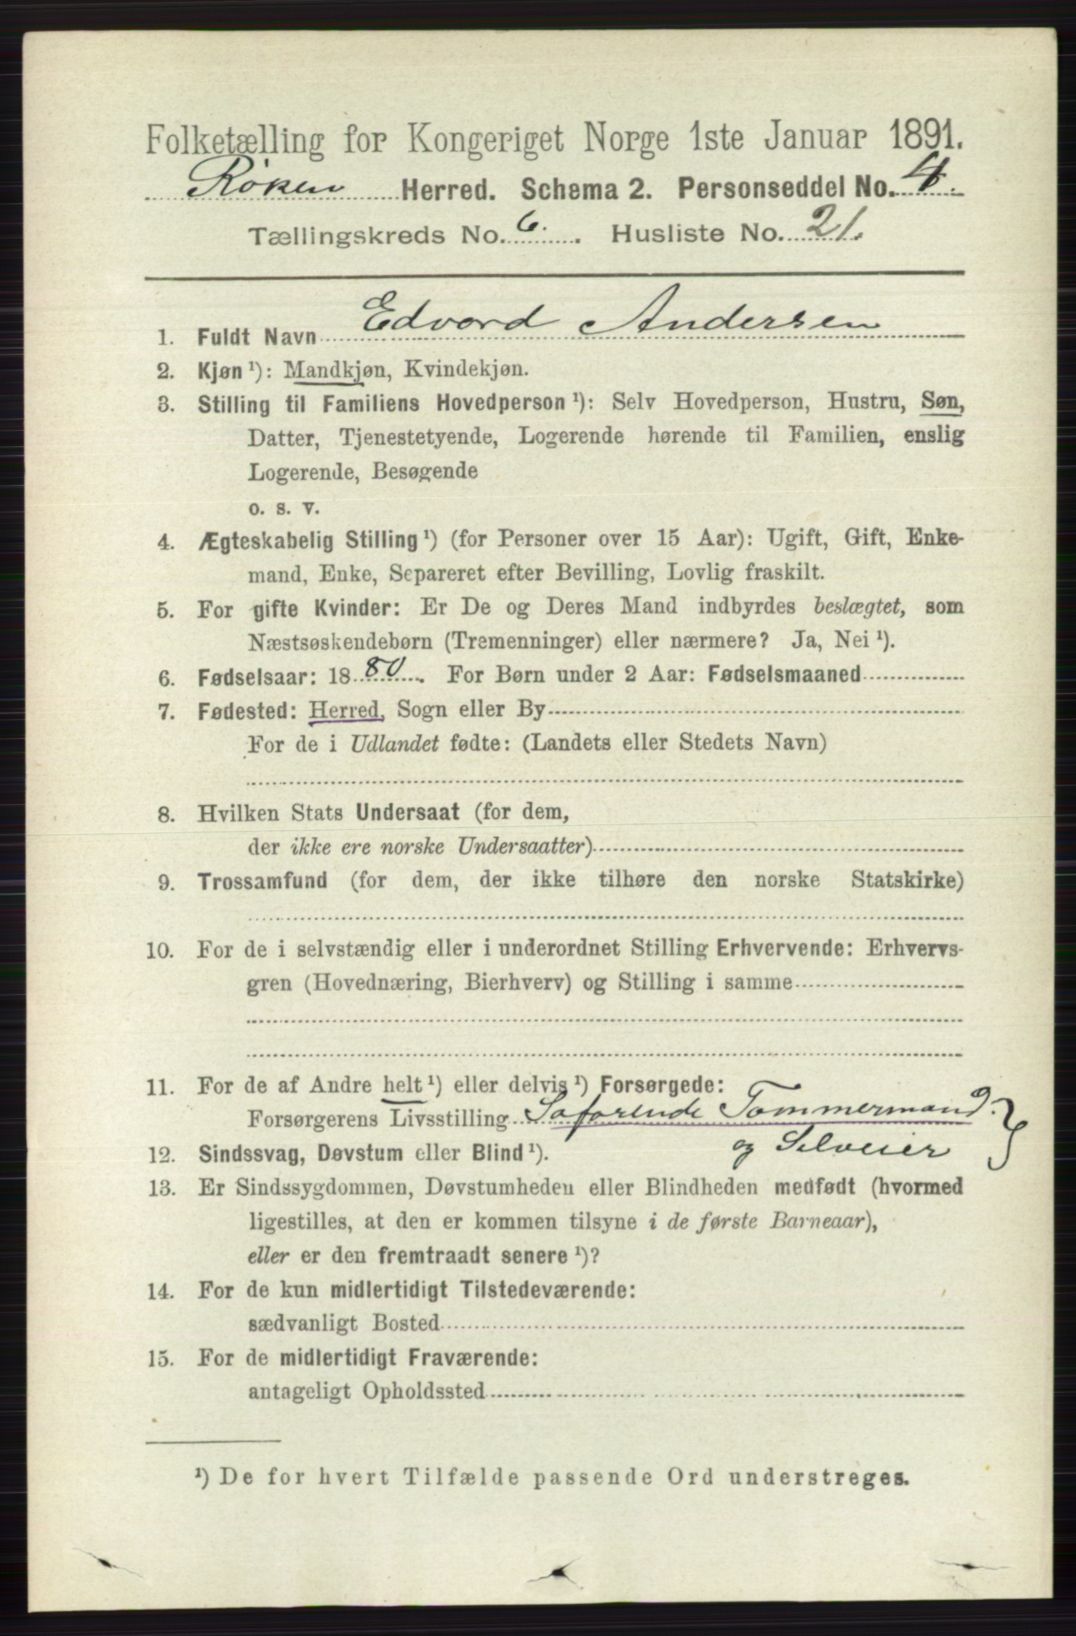 Folketælling for Kongeriget Norge 1ste Januar 1891.
Røken Herred. Schema 2. Personseddel No. 4.
Tællingskreds No. 6. Husliste No. 21.
1. Fuldt Navn Edvard Andersen
2. Kjøn ¹): Mandkjøn, Kvindekjøn.
3. Stilling til Familiens Hovedperson ¹): Selv Hovedperson, Hustru, Søn,
Datter, Tjenestetyende, Logerende hørende til Familien, enslig
Logerende, Besøgende
o. s. v.
4. Ægteskabelig Stilling ¹) (for Personer over 15 Aar): Ugift, Gift, Enke-
mand, Enke, Separeret efter Bevilling, Lovlig fraskilt.
5. For gifte Kvinder: Er De og Deres Mand indbyrdes beslægtet, som
Næstsøskendebørn (Tremenninger) eller nærmere? Ja, Nei ¹).
6. Fødselsaar: 1880. For Børn under 2 Aar: Fødselsmaaned
7. Fødested: Herred, Sogn eller By
For de i Udlandet fødte: (Landets eller Stedets Navn)
8. Hvilken Stats Undersaat (for dem,
der ikke ere norske Undersaatter)
9. Trossamfund (for dem, der ikke tilhøre den norske Statskirke)
10. For de i selvstændig eller i underordnet Stilling Erhvervende: Erhvervs-
gren (Hovednæring, Bierhverv) og Stilling i samme
11. For de af Andre helt ¹) eller delvis ¹) Forsørgede:
Forsørgerens Livsstilling Søfarende Tømmermand.
og Selveier
12. Sindssvag, Døvstum eller Blind ¹).
13. Er Sindssygdommen, Døvstumheden eller Blindheden medfødt (hvormed
ligestilles, at den er kommen tilsyne i de første Barneaar),
eller er den fremtraadt senere ¹)?
14. For de kun midlertidigt Tilstedeværende:
sædvanligt Bosted
15. For de midlertidigt Fraværende:
antageligt Opholdssted
¹) De for hvert Tilfælde passende Ord understreges.